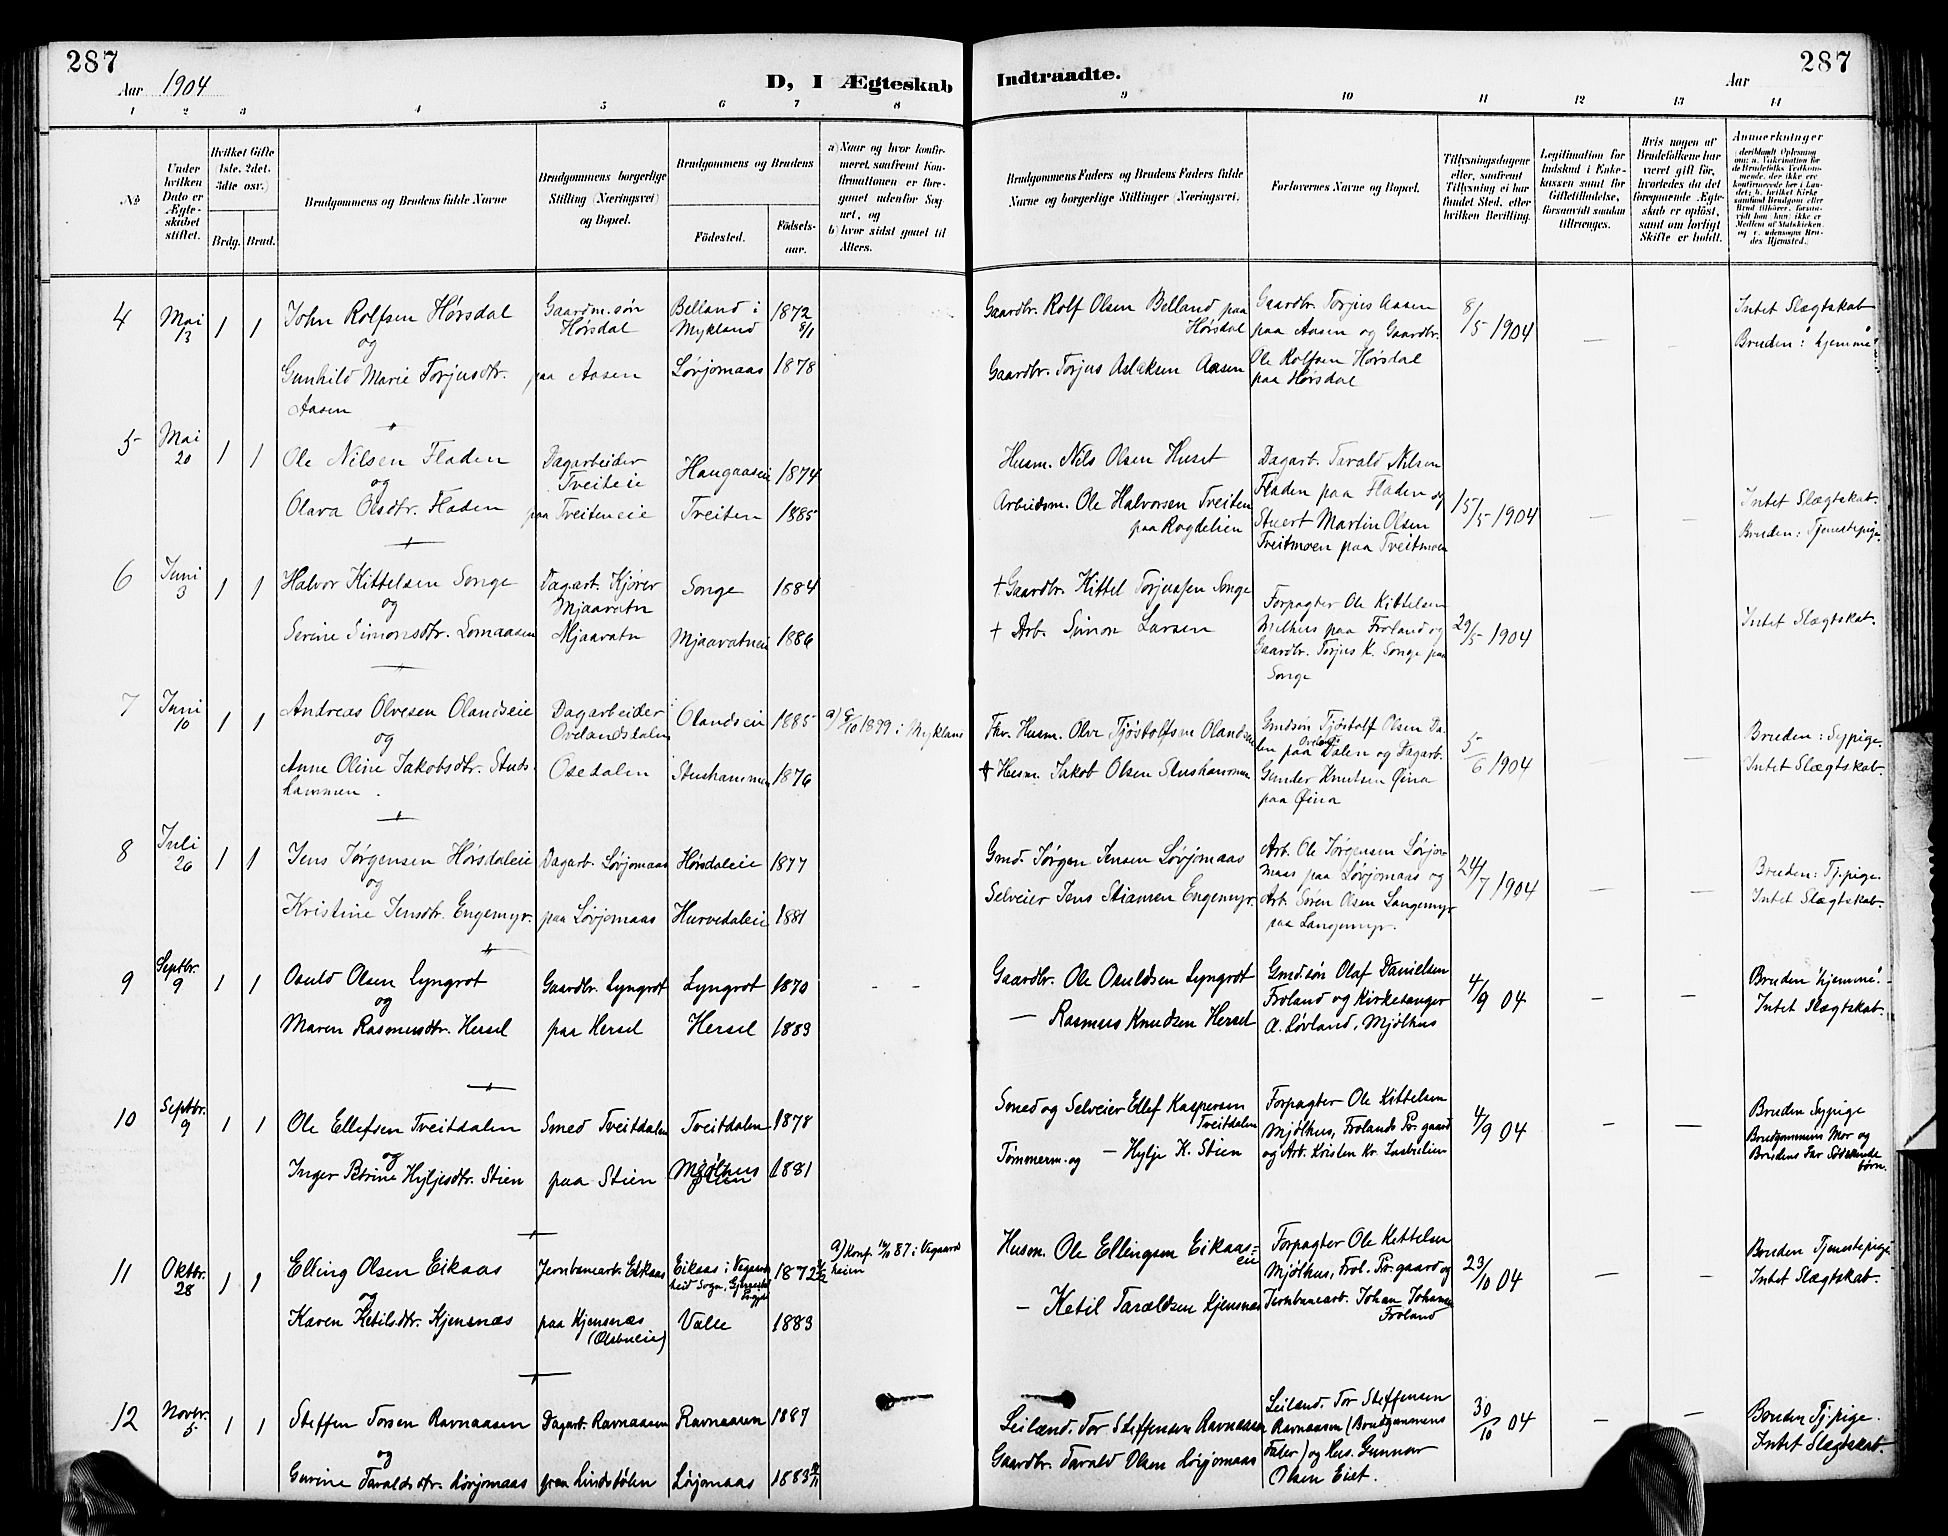 287
Aar 1904
D, I Ægteskab
Indtraadte.
Aar
287
1 2 3 4 5 6 7 8 9 10 11 12 13 14
No
Under hvilken Dato er Ægteskabet stiftet.
Hvilket Gifte (1ste, 2det, 3die osv.)
Brdg. Brud.
Brudgommens og Brudens fulde Navne
Brudgommens borgerlige Stilling (Næringsvei) og Bopæl.
Brudgommens og Brudens
Fødested.
Fødselsaar.
a) Naar og hvor konfirmeret, saafremt Konfirmationen er foregaaet udenfor Sognet, og
b) hvor sidst gaaet til Alters.
Brudgommens Faders og Brudens Faders fulde Navne og borgerlige Stillinger (Næringsvei).
Forlovernes Navne og Bopæl.
Tillysningsdagene eller, saafremt Tillysning ei har fundet Sted, efter hvilken Bevilling.
Legitimation for Indskud i Enkekassen samt for Giftetilladelse, forsaavidt saadan tiltrænges.
Hvis nogen af Brudefolkene har været gift før, hvorledes da det foregaaende Ægteskab er opløst, samt om lovligt Skifte er holdt.
Anmerkninger
4 Mai 13 1 1
John Rolfsen Hørsdal
og
Gunhild Marie Torjusdtr.
Aasen
Gaardm.søn
Hørsdal
paa Aasen
Belland i
Mykland
Løvjomaas
1872
8/1
1878
Gaardbr. Rolf Olsen Belland paa
Hørsdal
Gaardbr. Torjus Aslaksen Aasen
Gaardbr. Torjus Aasen
paa Aasen og Gaardbr.
Ole Rolfsen Hørsdal
paa Hørsdal
8/5 1904
— —
Intet Slægtskab
Bruden: "hjemme"
5 Mai 20 1 1
Ole Nilsen Fladen
og
Olava Olsdtr. Fladen
Dagarbeider
Treiteie
paa Treiteneie
Haugaaseie
Treiten
1874
1885
Husm. Nils Olsen Huset
Arbeidsm. Ole Halvorsen Treiten
paa Rogdelien
Dagarb. Tarald Nilsen
Fladen paa Fladen og
Stuert Martin Olsen
Treitmoen paa Treitmoen
15/5 1904
— —
Intet Slægtskab.
Bruden: Tjenestepige.
6 Juni 3 1 1
Halvor Kittelsen Songe
og
Serine Simonsdtr. Lomaasen
Dagarb. Kjører
Mjaavatn
Mjaavatn
Songe
Mjaavatneie
1884
1886
+ Gaardbr. Kittel Torjussen Songe
+ Arb. Simon Larsen
Forpagter Ole Kittelsen
Mølhus paa Froland og
Gaardbr. Torjus K. Songe paa
Songe
29/5 1904
— —
Intet Slægtskab.
7 Juni 10 1 1
Andreas Olvesen Olandseie
og
Anne Oline Jakobsdtr. Stus-
hammen.
Dagarbeider
Ovelandsdalen
Osedalen
Olandseie
Stushammen
1885
1876
a) 8/10 1899 i Mykland
Fhv. Husm. Olve Tjøstolfsen Olandseie
+ Husm. Jakob Olsen Stushammen
Gmdsøn Tjøstolf Olsen Da-
len paa Ovelands Dalen og Dagarb.
Gunder Knutsen Øina
paa Øina
5/6 1904
— —
Bruden: Sypige.
Intet Slægtskab.
8 Juli 26 1 1
Jens Jørgensen Hørsdaleie
og
Kristine Jensdtr. Engemyr.
Dagarb. Løvjomaas
paa Løvjomaas
Hørsdaleie
Hurvedaleie
1877
1881
Gmd. Jørgen Jensen Løvjomaas
Selveier Jens Stiansen Engemyr.
Arb. Ole Jørgensen Løvjo-
maas paa Løvjomaas og
Arb. Søren Olsen Langemyr
paa Langemyr.
24/7 1904
— —
Bruden: Tj.pige.
Intet Slægtskab.
9 Septbr. 9 1 1
Osuld Olsen Lyngrot
og
Maren Rasmusdtr. Hersel
Gaardbr. Lyngrot
paa Hersel
Lyngrot
Hersel
1870
1883
– –
Gaardbr. Ole Osuldsen Lyngrot
— Rasmus Knudsen Hersel
Gmd.søn Olaf Danielsen
Froland og Kirkesanger
A. Løvland, Mjølhus
4/9 04
— —
Bruden "hjemme".
Intet Slægtskab.
10 Septbr. 9 1 1
Ole Ellefsen Treitdalen
og
Inger Børine Hyljesdtr. Stien
Smed Treitdalen
paa Stien
Treitdalen
Mjølhus
Stien
1878
1881
Smed og Selveier Ellef Kaspersen
Treitdalen
Tømmerm. og — Hylje K. Stien
Forpagter Ole Kittelsen
Mjølhus, Frolands Pr.gaard
og Arb. Kristen Kr.
4/9 04
— —
Bruden Sypige
Brudgommens Mor og
Brudens Far Sødskende
børn.
11 Oktbr. 28 1 1
Elling Olsen Eikaas
og
Karen Ketilsdtr. Kjensnæs
Jernbanearb. Eikaas
paa Kjensnæs
(Olsbueie)
Eikaas i Vegaards
heid Sogn,
Valle
1872
1883
a) Konf. 16/10 87 i Vegaards
heien
Husm. Ole Ellingsen Eikaas=
eie
— Ketil Taraldsen Kjensnæs
Forpagter Ole Kittelsen
Mjølhus, Frol. Pr.gaard og
Jernbanearb. Johan Johansen
Froland
23/10 04
— —
Bruden Tjenestepige
Intet Slægtskab.
12 Novbr. 5 1 1
Steffen Torsen Ravnaasen
og
Gurine Taraldsdtr. Løvjomaas
Dagarb. Ravnaasen
paa Lindstølen
Ravnaasen
Løvjomaas
1887
1883
Leilænd. Tor Steffensen Ravnaasen
Gaardbr. Tarald Olsen Løvjomaas
Leilænd. Tor Steffensen
Ravnaasen (Brudgommens
Fader) og Hus. Gunnar
Olsen Eiet.
30/10 04
— —
Bruden Tj.pige.
Intet Slægtskab.